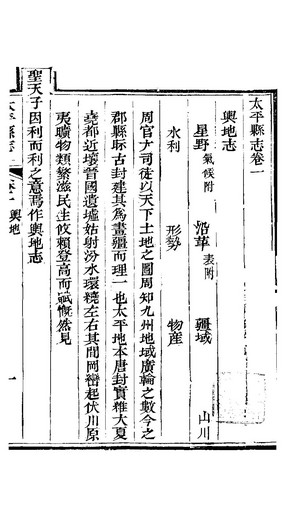 太平縣志卷一
輿地志
星野 氣候附 沿革 表附 疆域 山川
水利 形勢 物産
周官大司徒以天下土地之圖周知九州地域廣輪之數今之
郡縣眎古封建其為畫疆而理一也太平地本唐封實雜大夏
堯都近壤晉國遺墟姑射汾水環繞左右其間岡巒起伏川原
夷曠物類繁滋民生攸賴登高而賦慨然見
聖天子因利而利之意焉作輿地志
卷一 輿地
一